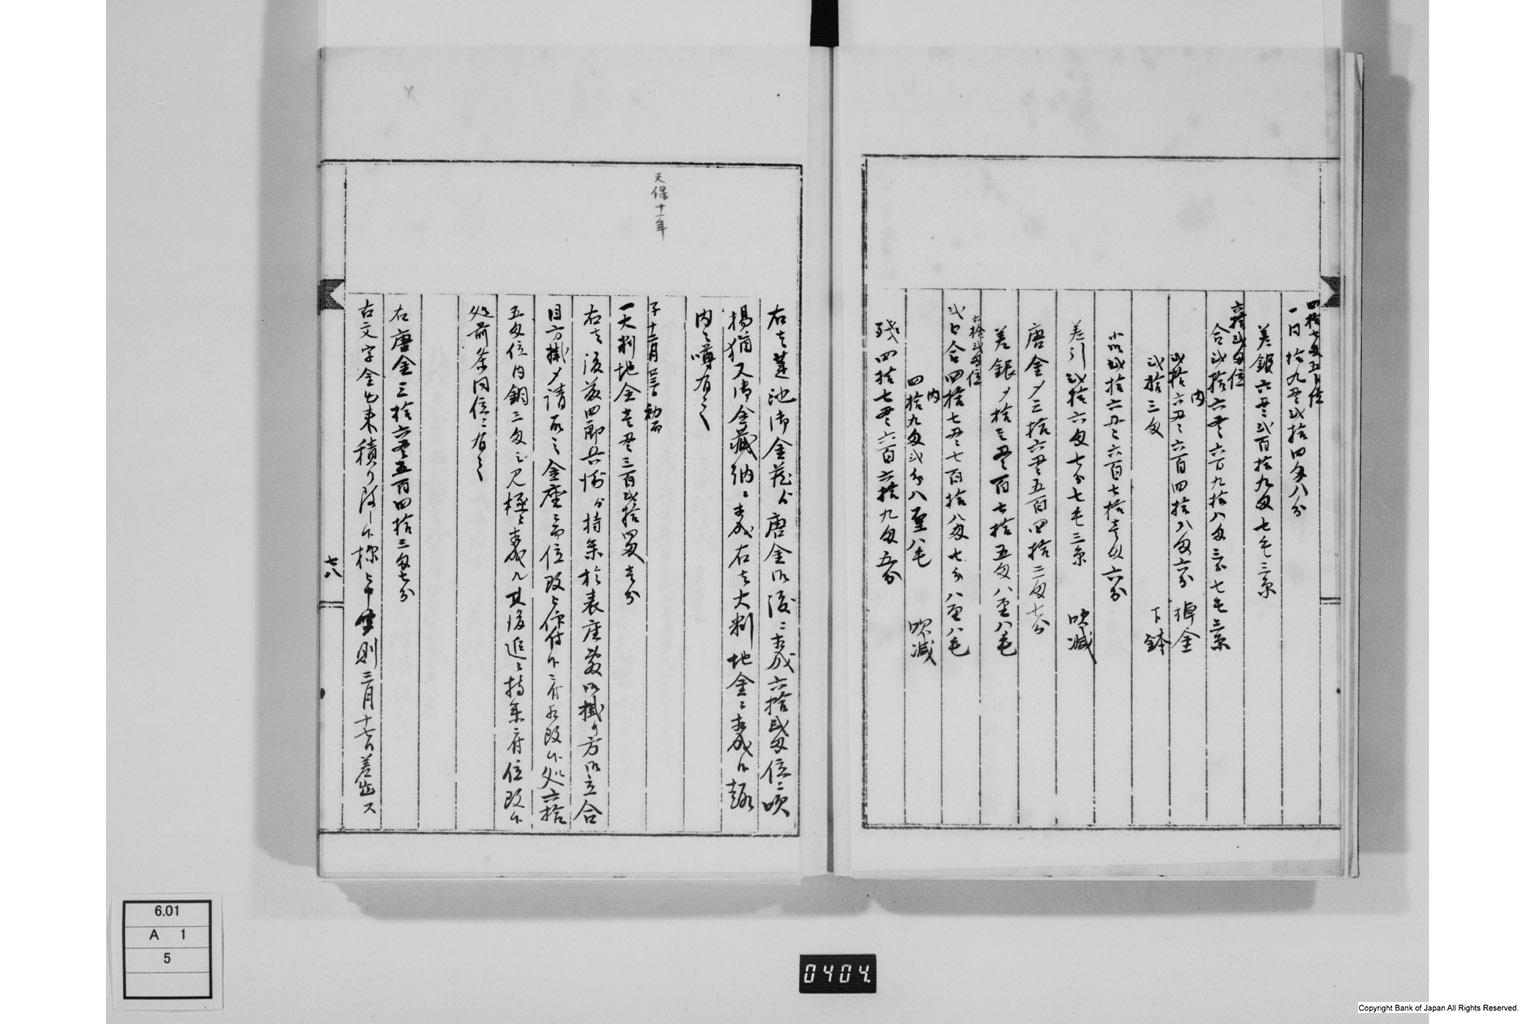 四拾七匁五分位
一同拾九〆弐拾四匁八分
差銀六〆弐百拾九匁七毛三糸
六拾弐匁位
合弐拾六〆六百九拾八匁三分七毛三糸
内
弐拾六〆六百四拾八匁六分 掉金
弐拾三匁 下鉢
小以弐拾六〆六百七拾壱匁六分
差引弐拾六匁七分七毛三糸 吹減
唐金〆三拾六〆五百四拾三匁七分
差銀〆拾壱〆百七拾五匁八厘八毛
六拾弐匁位
弐口合四拾七〆七百拾八匁七分八厘八毛
内
四拾九匁弐分八厘八毛 吹減
残四拾七〆六百六拾九匁五分
右者蓮池御金蔵ゟ唐金御渡ニ相成六拾弐匁位ニ吹
揚猶又御金蔵納ニ相成右者大判地金ニ相成候趣
内々噂有之
天保十一年
子十二月
一大判地金壱〆三百弐拾四匁壱分
右者後藤四郎兵衛ゟ持参於表座藤御掛り方御立合
目方掛〆請取之金座ニ而位改被仰付候ニ付相改候処六拾
五匁位内銅三匁之見極ニ相成尤其後追々持参ニ付位改候
処前条同位ニ有之
右唐金三拾六〆五百四拾三匁七分
古文字金出来積り
三月十七日差出ス
七八
6.01
A 1
5
0404.
Copyright Bank of Japan All Rights Reserved.